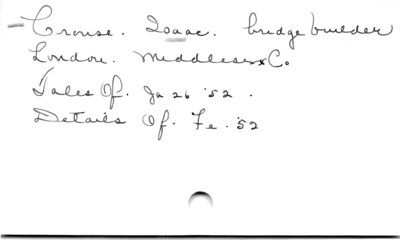 Crouse. Isaac. bridge builder
London. Middlesex Co.
Tales Of. Ja 26 '52.
Details Of. Fe. '52